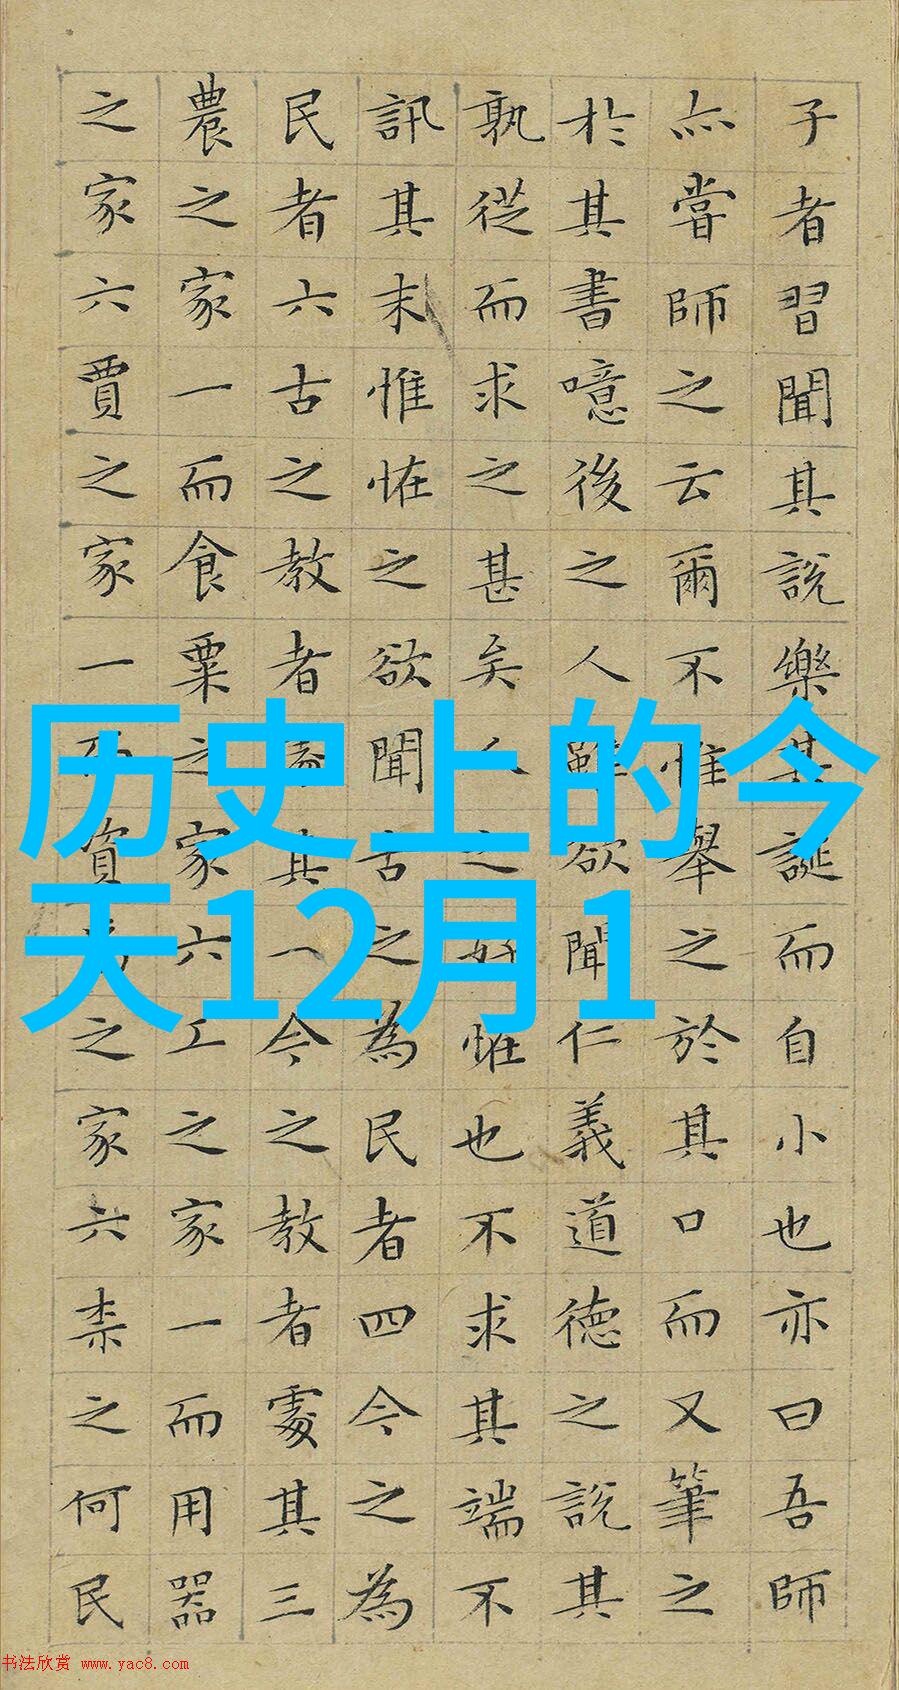 子者習聞其說樂其誕而自小也亦曰吾師
亦嘗師之云爾不惟舉之於其口而又筆之
於其書噫後之人雖欲聞仁義道德之說其
孰從而求之甚矣人之好怪也不求其端不
訊其末惟怪之欲聞古之為民者四今之為
民者六古之教者處其一今之教者處其三
農之家一而食粟之家六工之家一而用器
之家六賈之家一而資焉之家六柰之何民
历史上的今
天12月1
书法欣赏 www.yac8.com